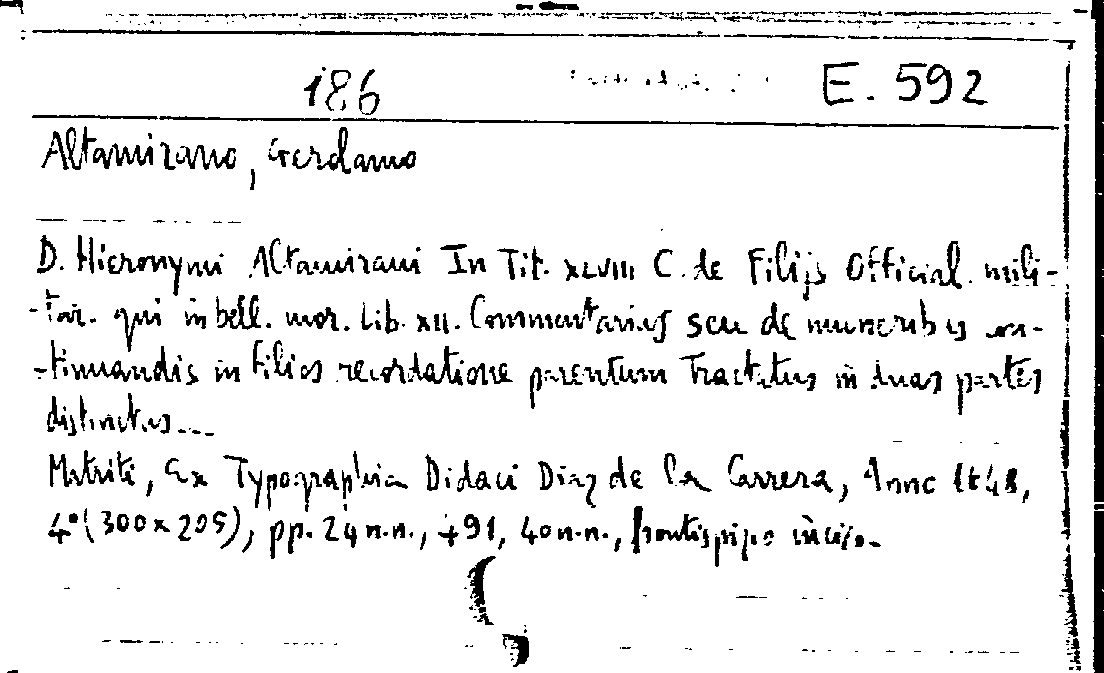 186 E. 592
Altamirano, Gerolamo
D. Hieronymi Altamirani In Tit. XLVIII C. de Filijs Official. mili-
-tar. qui in bell. mor. Lib. XII. Commentarius seu de muneribus con-
-tinuandis in filios recordatione parentum Tractatus in duas partes
distinctus...
Matriti, Ex Typographia Didaci Diaz de la Carrera, Anno 1648,
4° (300 x 205), pp. 24 n.n., 491, 40 n.n., frontispipo inciso.